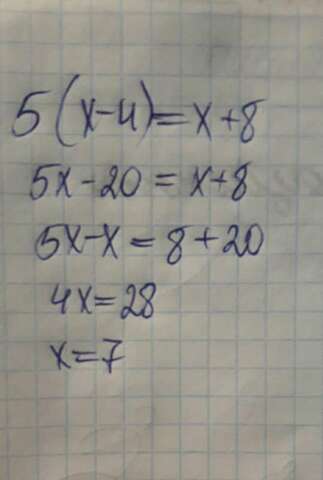 5(x-4)=x+8
5x-20=x+8
5x-x=8+20
4x=28
x=7